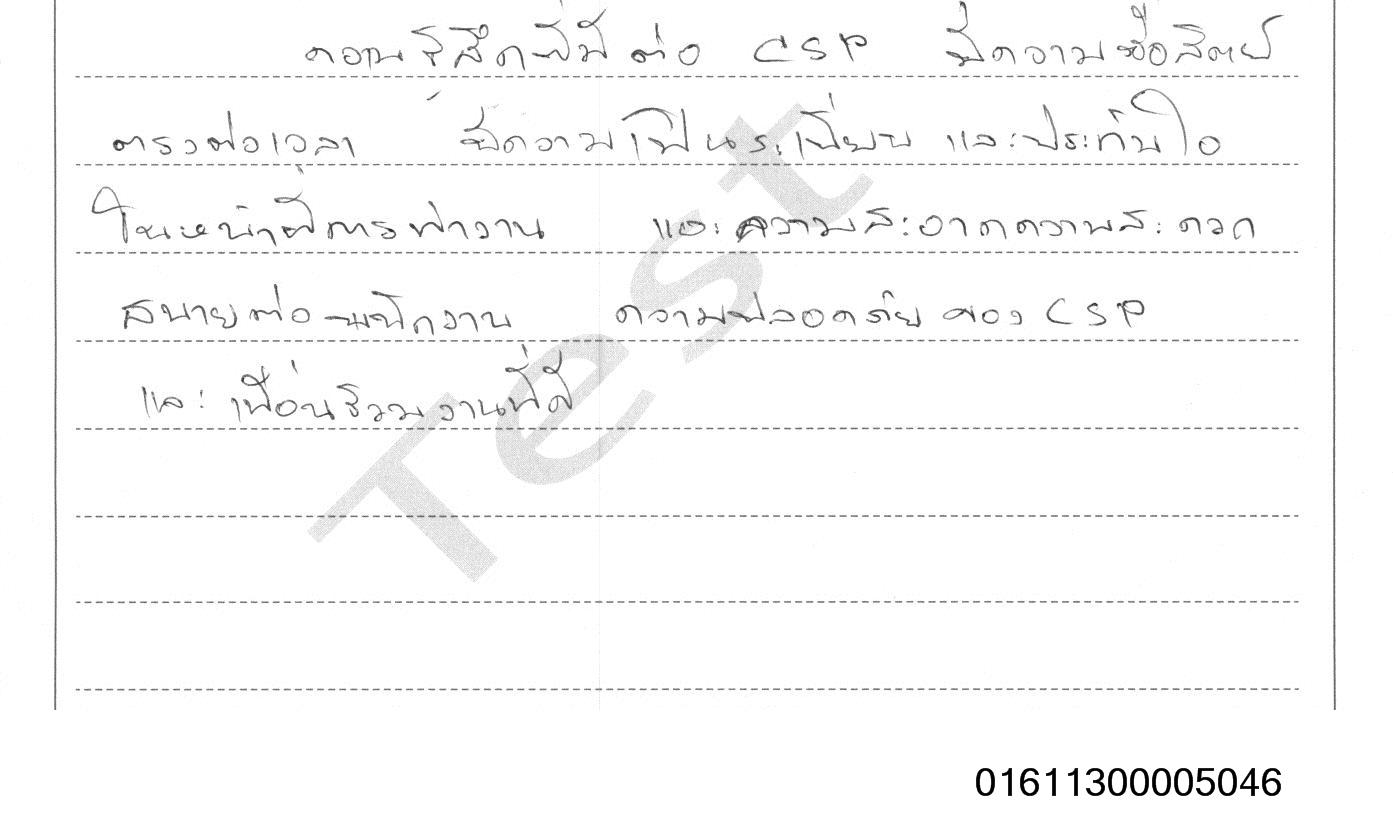 ความรู้สึกที่มีต่อ CSP มีความซื่อสัตย์
ตรงต่อเวลา มีความเป็นระเบียบ และประทับใจ
ในหน้าที่การทำงาน และความสะอาดความสะดวก
สบายต่อพนักงาน ความปลอดภัยของ CSP
และเพื่อนร่วมงานที่ดี
Test
01611300005046